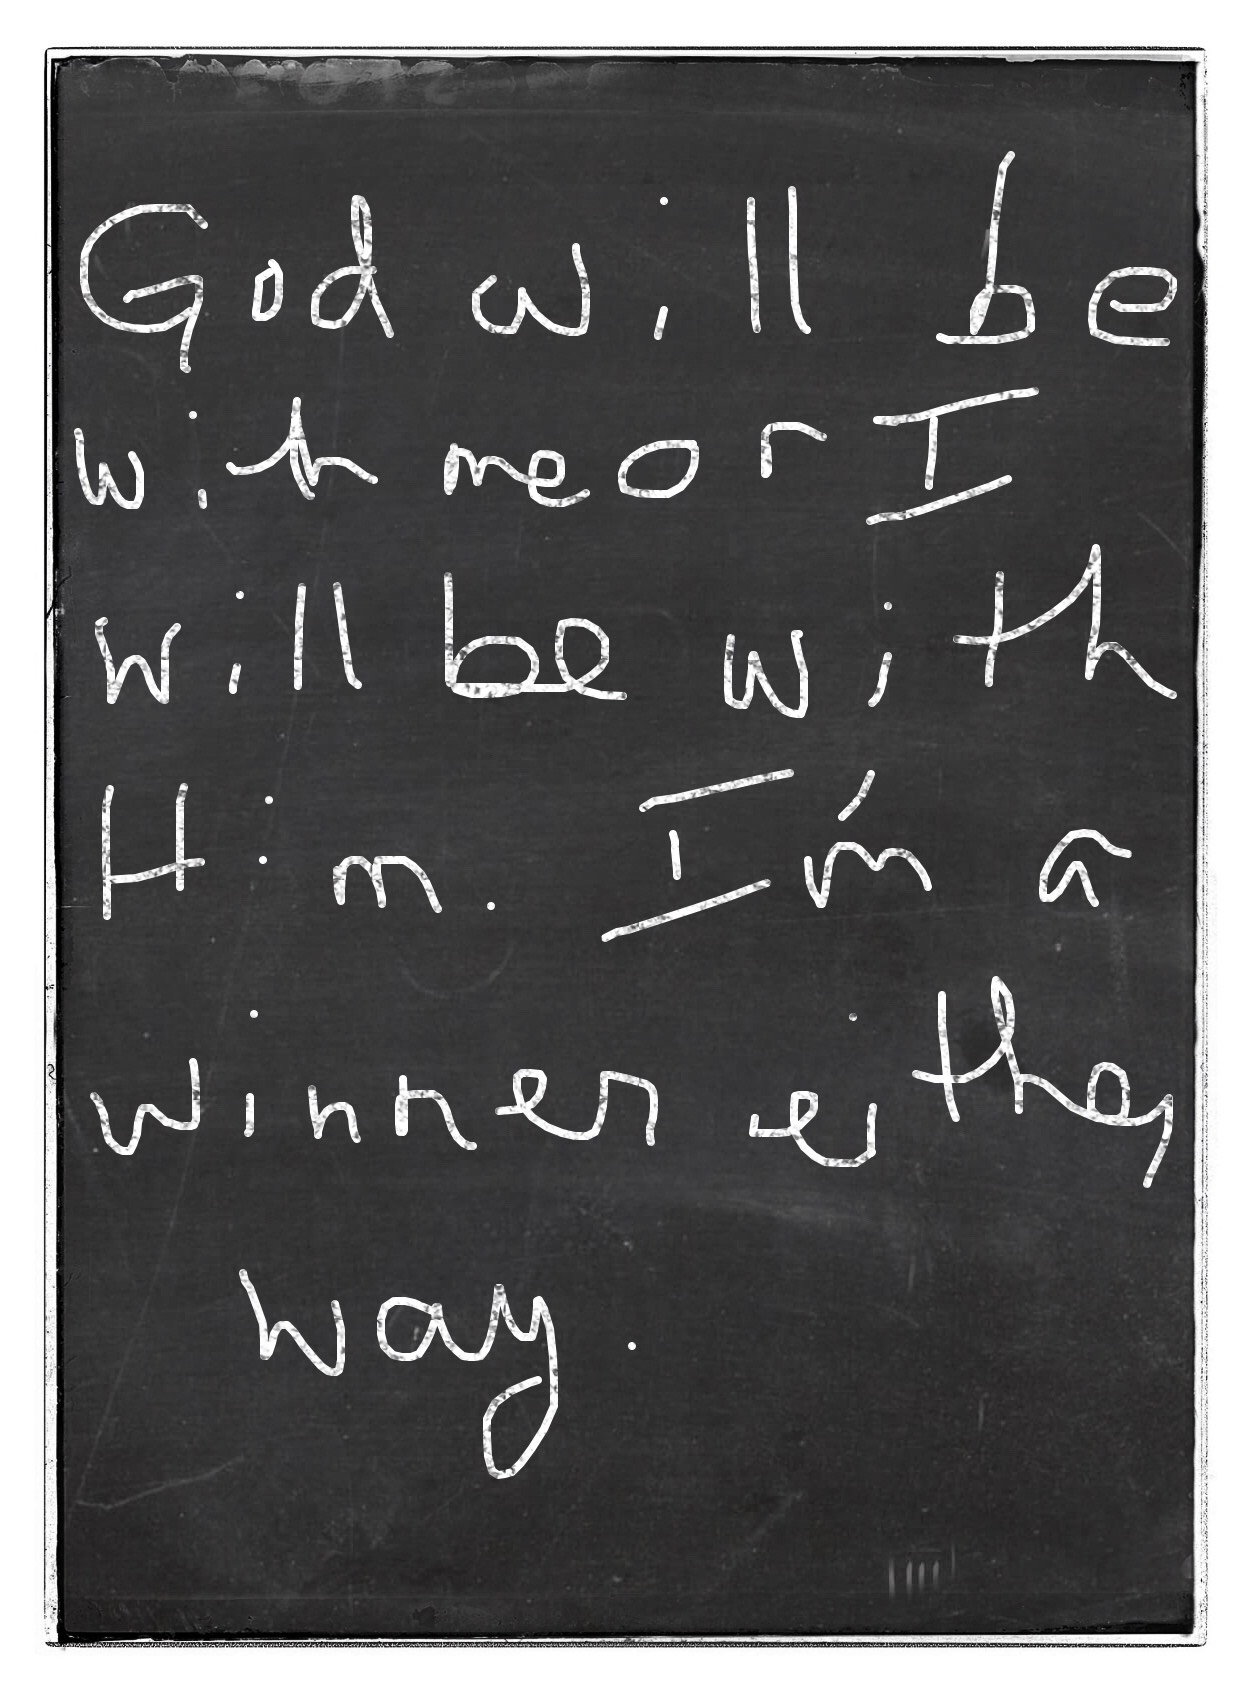 God will be
with me or I
will be with
Him. I'm a
winner either
way.